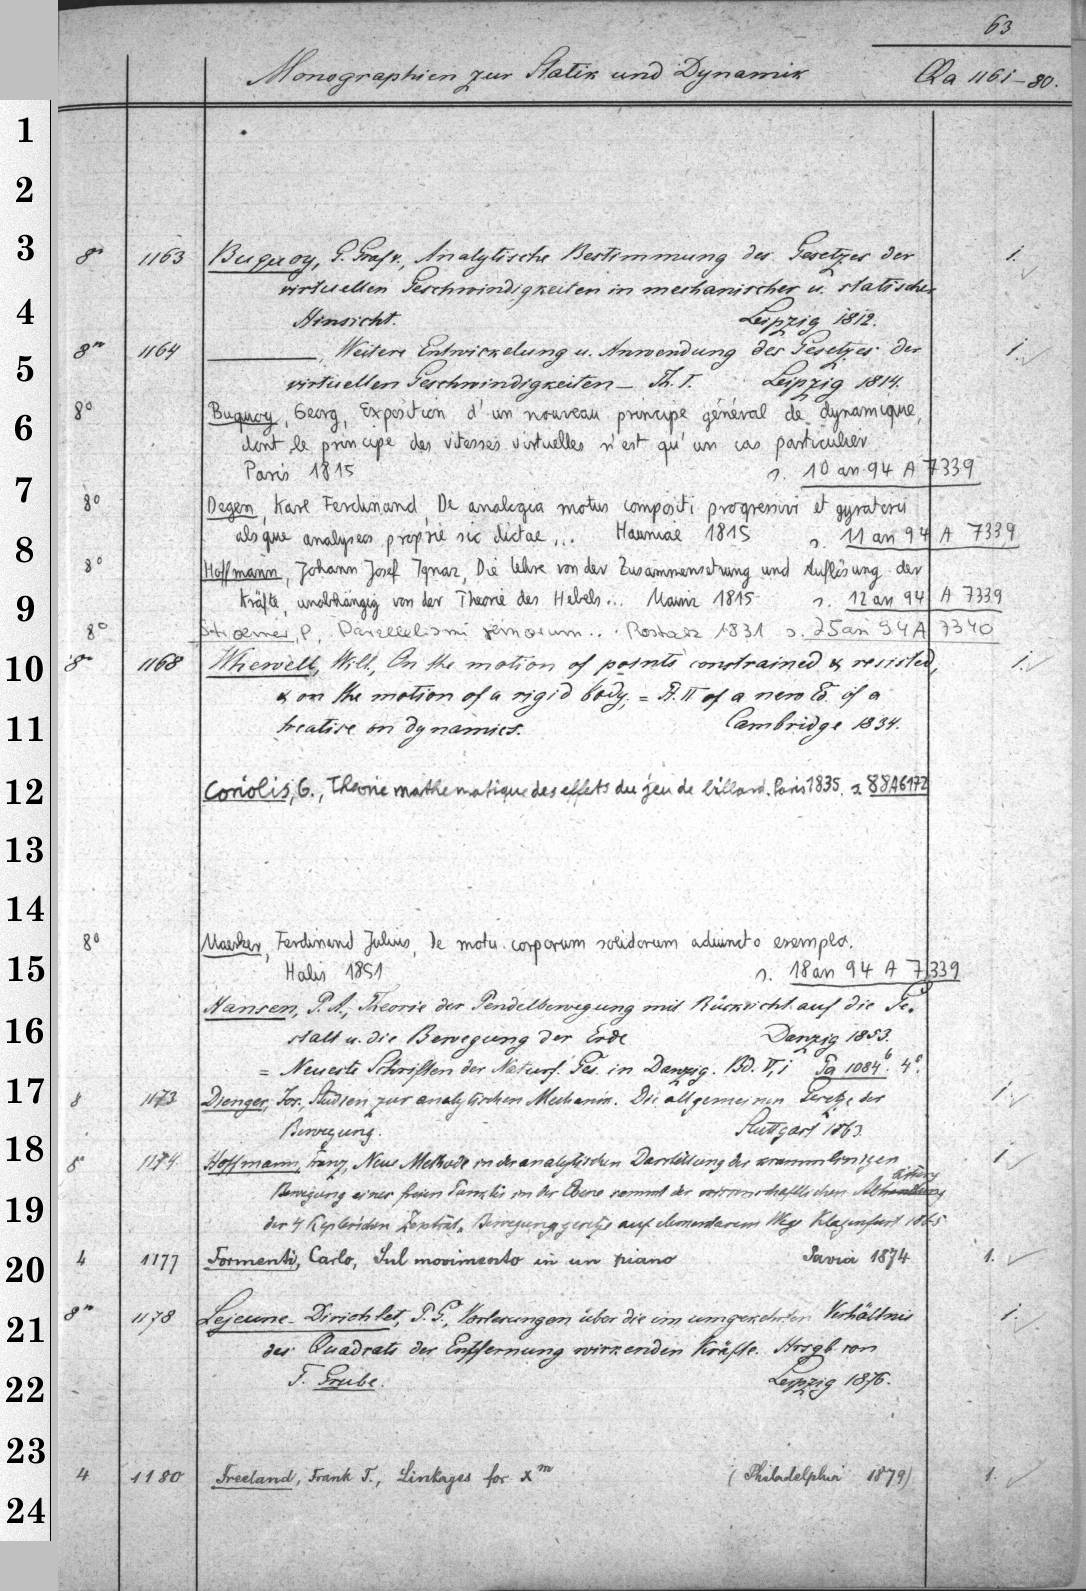 63
Monographien zur Statik und Dynamik Qa 1161-80.
1
2
3 8° 1163 Buquoy, G. Graf v., Analytische Bestimmung des Gesetzes der 1.
virtuellen Geschwindigkeiten in mechanischer u. statischer
4 Hinsicht. Leipzig 1812.
8° 1164 ———, Weitere Entwickelung u. Anwendung des Gesetzes der 1.
5 virtuellen Geschwindigkeiten – Th. I. Leipzig 1814.
8° Buquoy, Georg, Exposition d'un nouveau principe général de dynamique,
6 dont le principe des vitesses virtuelles n'est qu'un cas particulier
Paris 1815 s. 10 an 94 A 7339
7 8° Degen, Karl Ferdinand, De analogia motus compositi progressivi et gyratorii
8 absque analyseos proprie sic dictae ... Hauniae 1815 s. 11 an 94 A 7339
8° Hoffmann, Johann Josef Ignaz, Die Lehre von der Zusammensetzung und Auflösung der
9 Kräfte, unabhängig von der Theorie des Hebels... Mainz 1815 s. 12 an 94 A 7339
8° P., Parallelismi Rostock 1831 s. 25 an 94 A 7340
10 8° 1168 Whewell, Will., On the motion of points constrained & resisted, 1.
& on the motion of a rigid body, = Pt. II of a new Ed. of a
11 treatise on dynamics. Cambridge 1834.
12 Coriolis, G., Théorie mathématique des effets du jeu de billard. Paris 1835. s. 88 A 6172
13
14
8° Maerker, Ferdinand Julius, de motu corporum solidorum adiuncto exemplo.
15 Halis 1851 s. 18 an 94 A 7339
Hansen, P. A., Theorie der Pendelbewegung mit Rücksicht auf die Ge-
16 stalt u. die Bewegung der Erde Danzig 1853.
= Neueste Schriften der Naturf. Ges. in Danzig. Bd. V, 1 Pa 1084 b. 4°.
17 8 1173 Dienger, Jos., Studien zur analytischen Mechanik. Die allgemeinen Gesetze der 1.
Bewegung. Stuttgart 1863.
18 8° 1174 Hoffmann, Franz, Neue Methode in der analytischen Darstellung der krummlinigen 1
Bewegung eines freien Punktes in der Ebene sammt der wissenschaftlichen
19 der 4 Kepler'schen Bewegungsgesetze auf elementarem Wege Klagenfurt 1865
20 4 1177 Formenti, Carlo, Sul movimento in un piano Pavia 1874 1.
21 8° 1178 Lejeune-Dirichlet, P. G., Vorlesungen über die im umgekehrten Verhältnis 1.
des Quadrats der Entfernung wirkenden Kräfte. Hrsgb. von
22 F. Grube. Leipzig 1876.
23
4 1180 Freeland, Frank T., Linkages for x^m (Philadelphia 1879) 1.
24